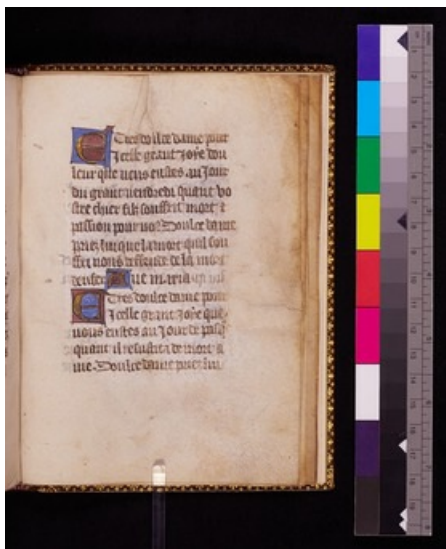 E Tres doulce dame pour
icelle grant joye dou
leur que vous eustes au jour
du grant vendredi quant vo
stre chier filz souffrit mort et
passion pour nos Doulce dame
priez luy que la mort quil sou
ffri nous deffende de la mort
denfer Ave maria
E Tres doulce dame pour
icelle grant joye que
vous eustes au jour de pasq
quant il resuscita de mort a
vie Doulce dame priez luy